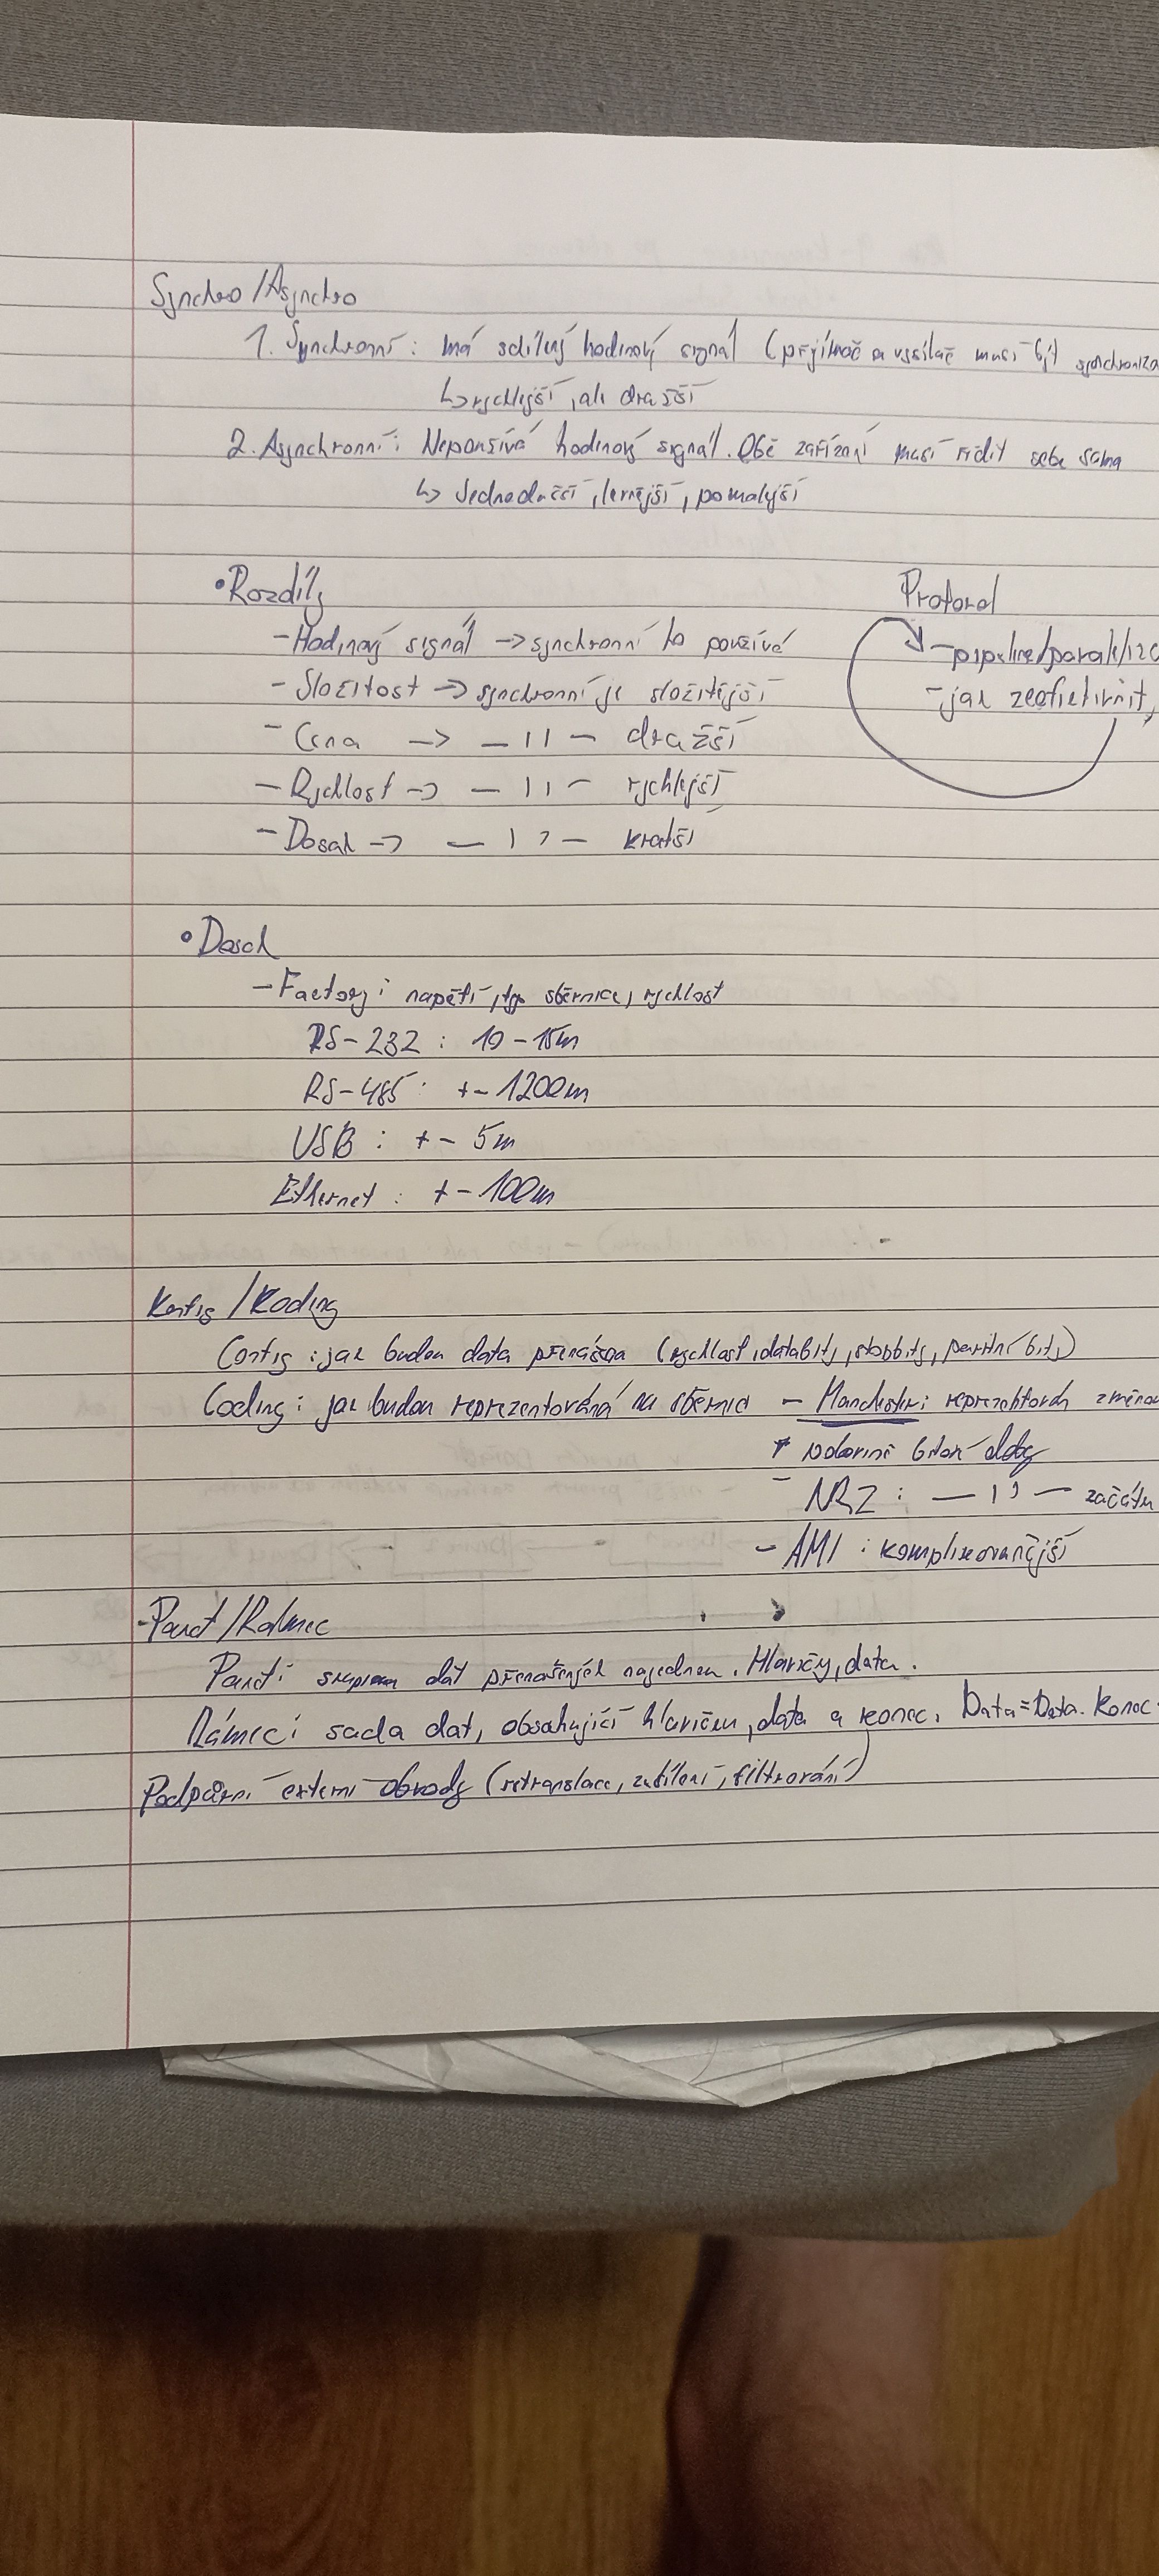 Synchro/Asynchro
1. Synchronní: má sdílený hodinový signál (přijímač a vysílač musí být synchroniza
↳ rychlejší, ale dražší
2. Asynchronní: Nepoužívá hodinový signál. Obě zařízení musí řídit sebe sama
↳ Jednodušší, levnější, pomalejší
• Rozdíly
- Hodinový signál -> synchronní ho používá
- Složitost -> synchronní je složitější
- Cena -> - 11 - dražší
- Rychlost -> - 11 - rychlejší
- Dosah -> - 11 - kratší
Protokol
- pipeline/paralelizc
- jak zeefektivnit,
• Dosah
- Factory: napětí, typ sběrnice, rychlost
RS-232 : 10-15m
RS-485 : +- 1200m
USB : +- 5m
Ethernet : +- 100m
Konfig/Koding
Config: jak budou data přenášena (rychlost, databity, stopbity, paritní bity)
Coding: jak budou reprezentována na sběrnici - Manchester: reprezentován změnou
v polovině bitové doby
- NRZ : - 11 - začátku
- AMI : komplikovanější
- Paket/Rámec
Paket: skupina dat přenášených najednou. Hlavičky, data.
Rámec: sada dat, obsahující hlavičku, data a konec. Data=Data. Konec
Podpůrné externí obvody (retranslace, zesílení, filtrování)